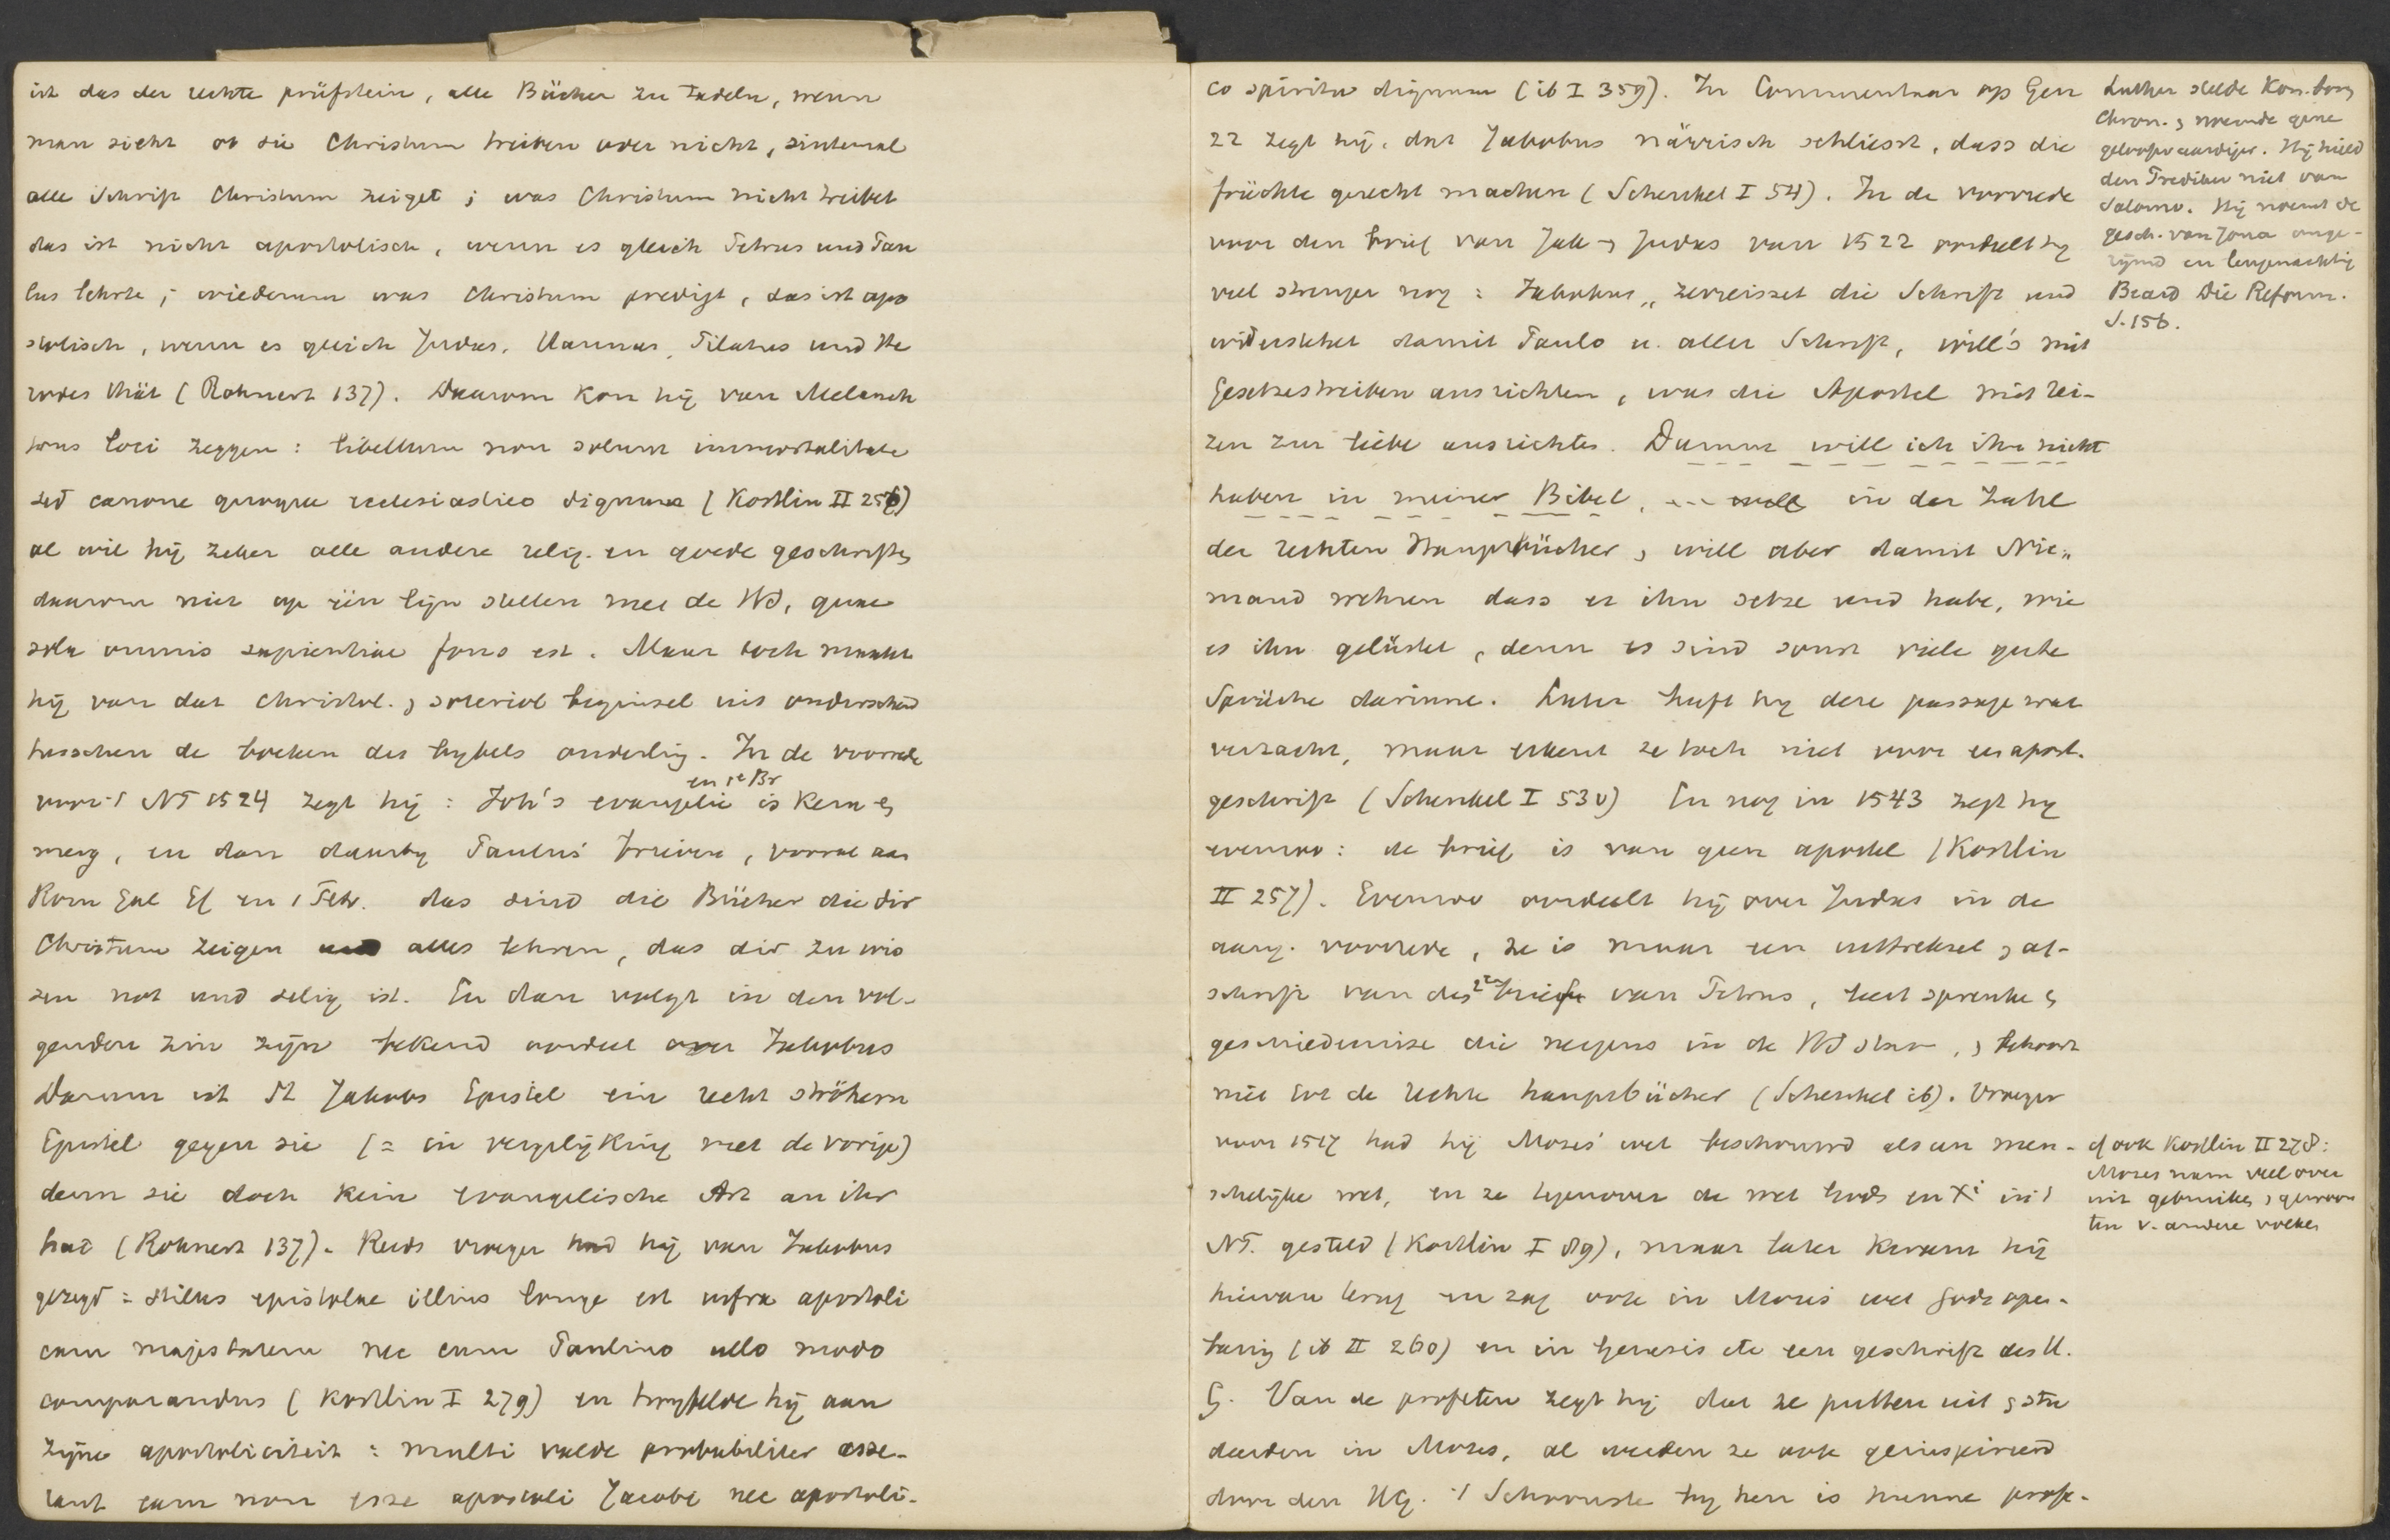 ist das der rechte prüfstein, alle Bücher zu tadeln, wenn
man sieht ob sie Christum treiben oder nicht, sintemal
alle Schrift Christum zeiget ; was Christum nicht treibet
das ist nicht apostolisch, wenn es gleich Petrus und Pau
lus lehrte ; wiederum was Christum predigt, das ist apo
stolisch, wenn es gleich Judas, Hannas, Pilatus und He
rodes thät (Rohnert 137). Daarom kon hij van Melanch
tons loci zeggen : libellum non solum immortalitate
sed canone quoque ecclesiastico dignum (Kostlin II 256)
al wil hij zeker alle andere relig. en goede geschriften
daarom niet op één lijn stellen met de HS, quae
sola omnis sapientiae fons est. Maar toch maakt
hij van dat christol. , soteriol beginsel uit onderscheid
tusschen de boeken des bybels onderling. In de voorrede
en 1e Br
voor 't NT 1524 zegt hij : Joh's evangelie is kern en
merg, en dan daarby Paulus' brieven, vooral aan
Rom Gal Ef en 1 Petr. das sind die Bücher die dir
Christum zeigen alles lehren, das dir zu wis
sen not und selig ist. En dan volgt in den vol-
genden zin zijn bekend oordeel over Jakobus
Darum ist St Jakobs Epistel ein recht ströhern
Epistel gegen sie (= in vergelijking met de vorige)
denn sie doch kein evangelische Art an ihr
hat (Rohnert 137). Reeds vroeger had hij van Jakobus
gezegd : stilus epistolae illius longe est infra apostoli
cam majestatem nec cum Paulino ullo modo
comparandus (Kostlin I 279) en twyfelde hij aan
zijne apostoliciteit : multi valde probabiliter asse-
rant eam non esse apostoli Jacobi nec apostoli-
co spiritu dignum (ib I 359). In Commentaar op Gen
22 zegt hij, dat Jakobus närrisch schliesst, dass die
früchte gerecht machen (Schenkel I 54). In de voorrede
voor den brief van Jak en Judas van 1522 oordeelt hy
veel strenger nog : Jakobus „ zerreisset die Schrift und
widerstehet damit Paulo u. aller Schrift, will's mit
Gesetzestreiben ausrichten, was die Apostel mit rei-
zen zur liebe ausrichten. Darum will ich ihn nicht
haben in meiner Bibel, ... in der Zahl
der rechten Hauptbücher, will aber damit Nie„
mand wehren dass er ihn setze und habe, wie
es ihn gelüstet, denn es sind sonst viele gute
Sprüche darinne. Later heeft hy deze passage wat
verzacht, maar erkent ze toch niet voor een apost.
geschrift (Schenkel I 530) En nog in 1543 zegt hy
evenzoo : de brief is van geen apostel (Kostlin
II 257). Evenzoo oordeelt hij over Judas in de
aang. voorrede, ze is maar een uittreksel en af-
schrift van des 2en brief van Petrus, heeft spreuken en
geschiedenisse die nergens in de HS staan, en behoort
niet tot de rechte hauptbücher (Schenkel ib). Vroeger
voor 1517 had hij Mozes' wet beschouwd als een men-
schelijke wet, en ze tegenover de wet Gods en Xi in 't
NT. gesteld (Kostlin I 89), maar later kwam hij
hiervan terug en zag ook in Mozes' wet Gods open-
baring (ib II 260) en in Genesis etc een geschrift des H.
G. Van de profeten zegt hij dat ze putten uit en stu
deerden in Mozes, al werden ze ook geinspireerd
door den HG. 't Schoonste by hen is hunne profe-
Luther stelde Kon. boven
Chron. en noemde gene
geloofwaardiger. Hij hield
den Prediker niet van
Salomo. Hij noemt de
gesch. van Jona onge-
rijmd en leugenachtig
Beard Die Reform.
S. 156.
cf ook Kostlin II 278 :
Mozes nam veel over
uit gebruiken en gewoon
ten v. andere volken